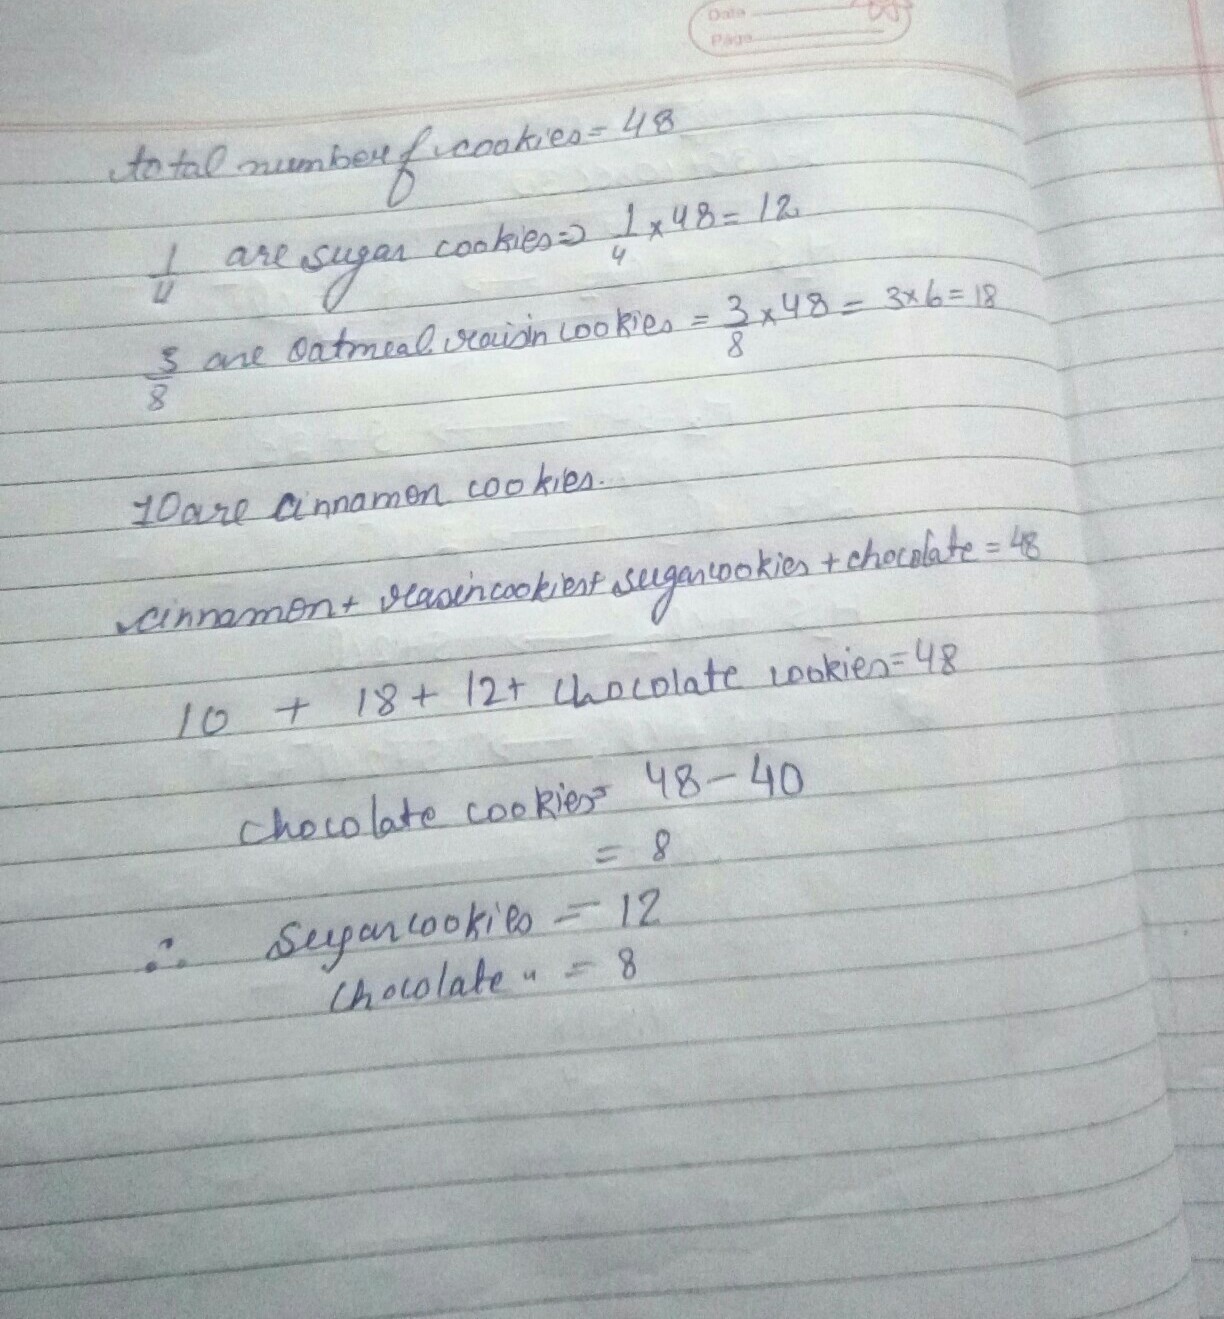 Date
Page
total number of cookies = 48
1/4 are sugar cookies => 1/4 x 48 = 12
3/8 are oatmeal raisin cookies = 3/8 x 48 = 3x6 = 18
10 are cinnamon cookies.
cinnamon + reasin cookies + sugar cookies + chocolate = 48
10 + 18 + 12 + chocolate cookies = 48
chocolate cookies = 48 - 40
= 8
∴ sugar cookies = 12
chocolate " = 8